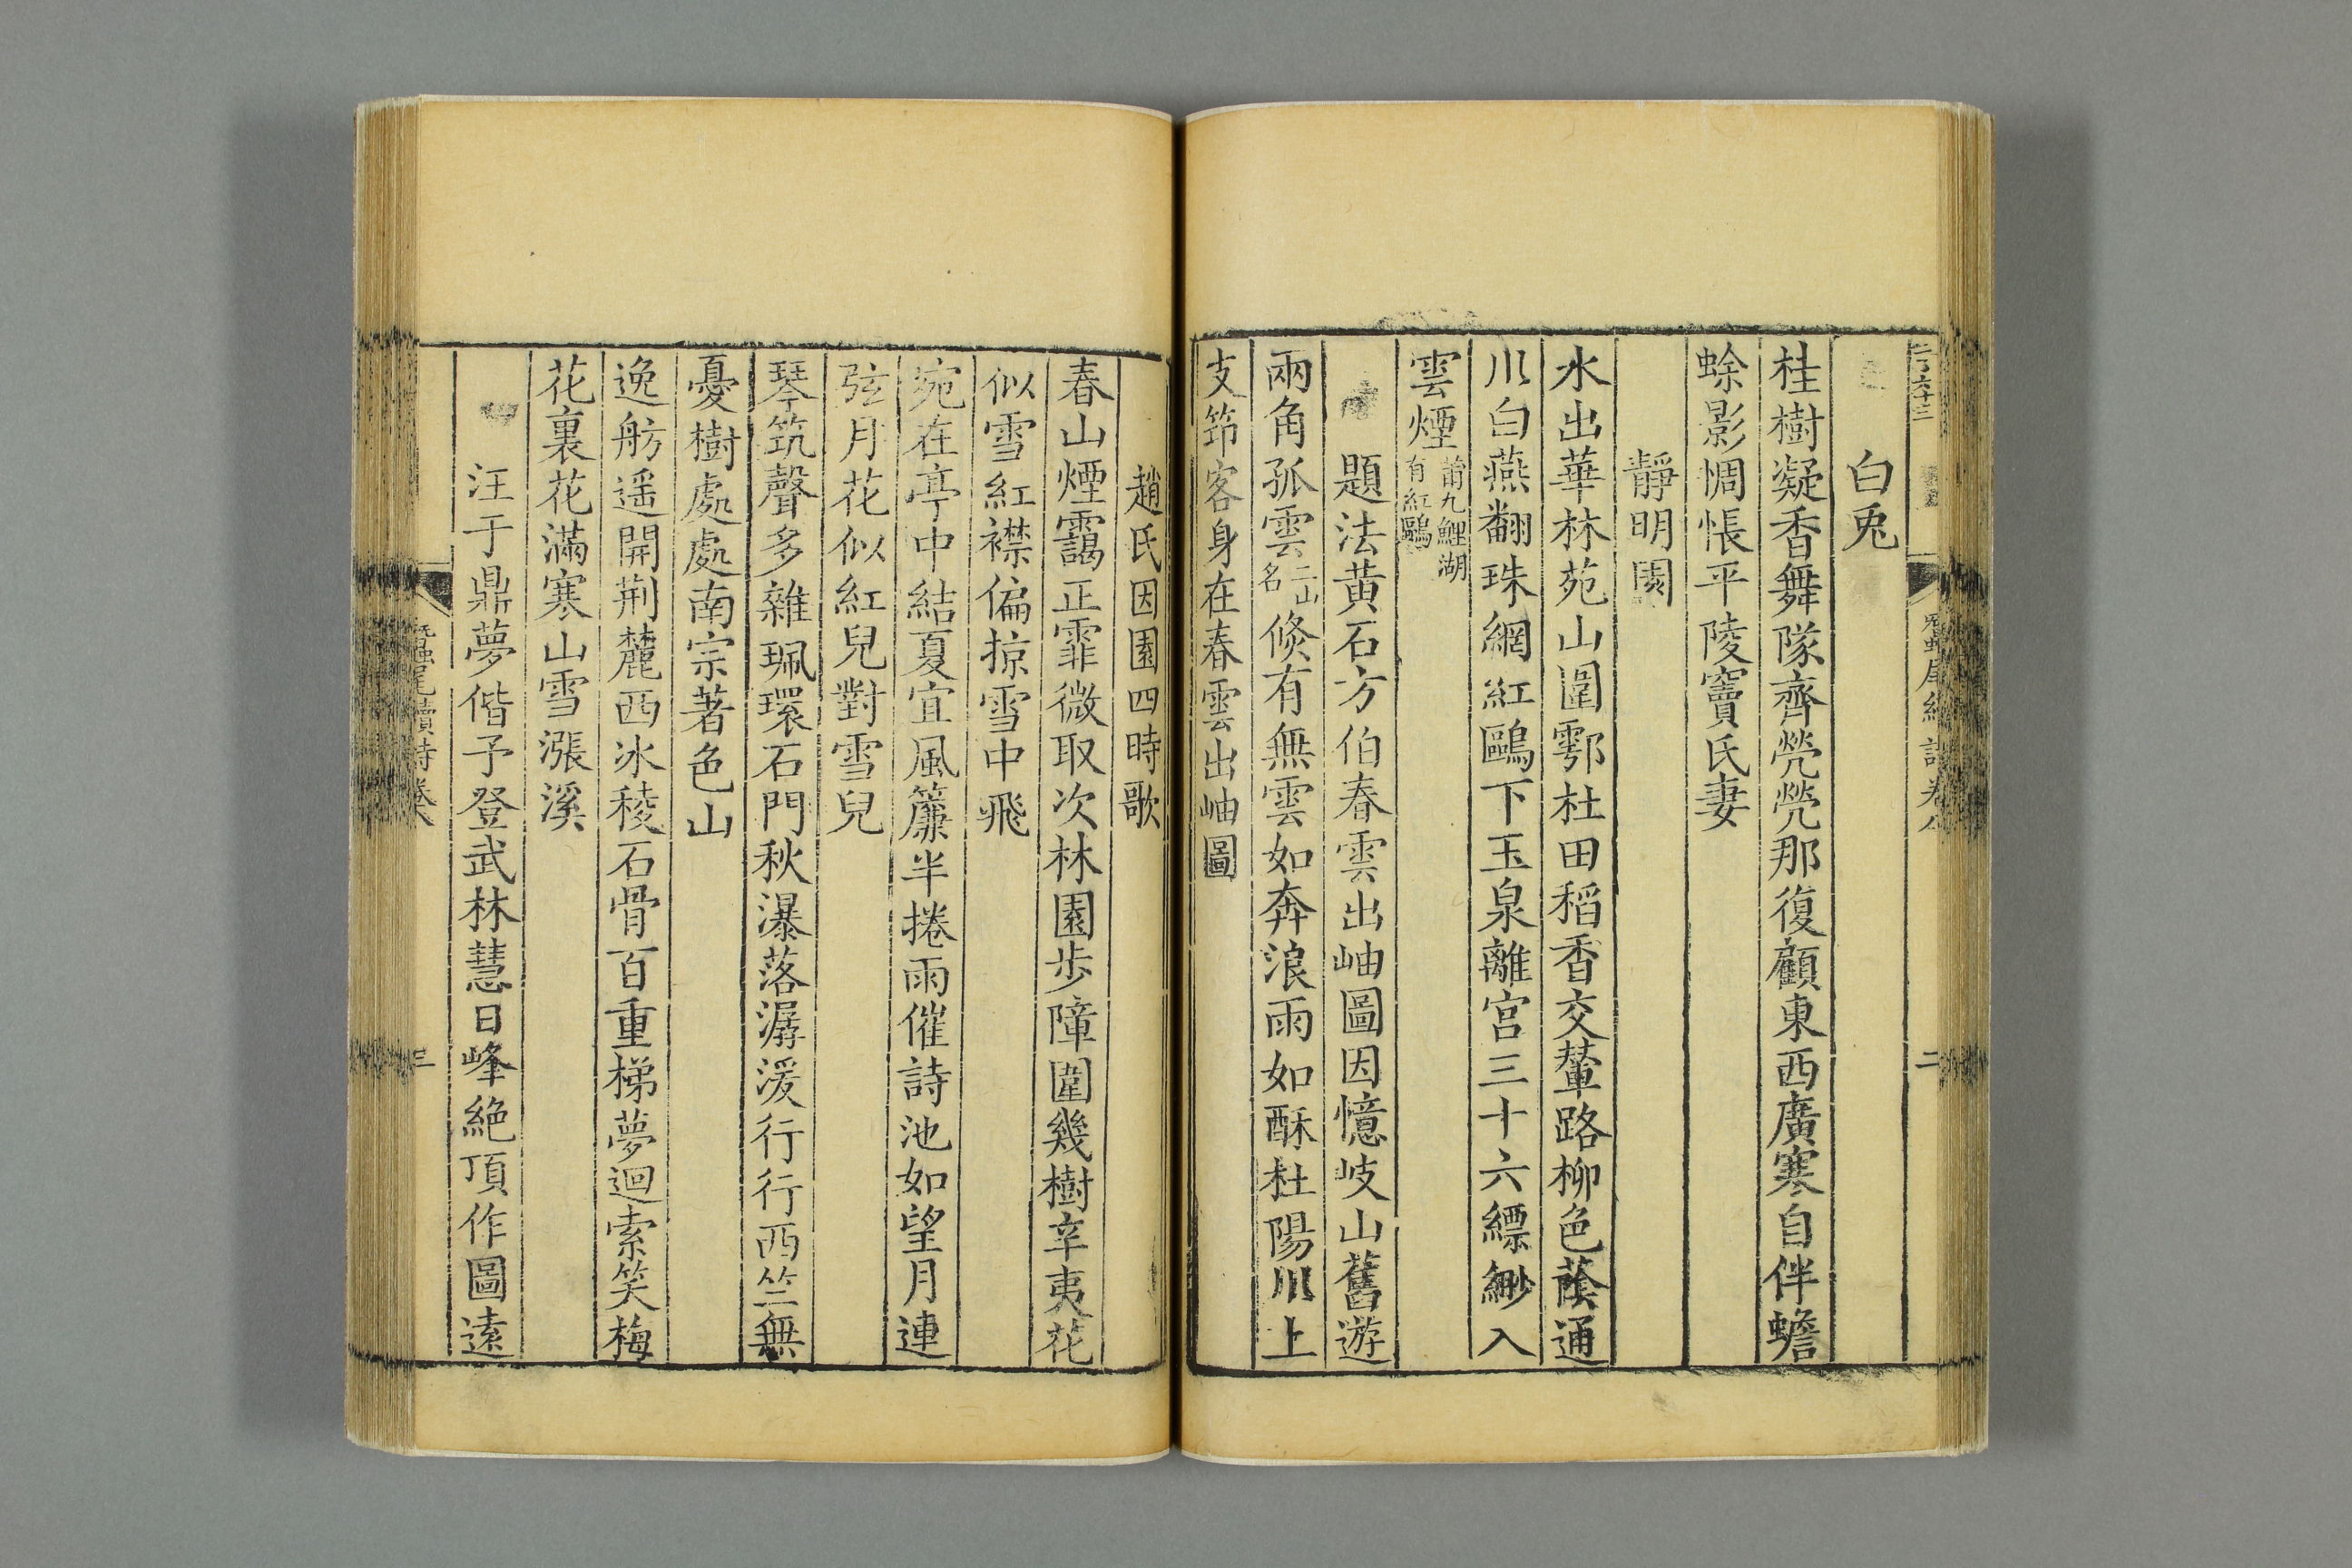 白兎
桂樹凝香舞隊齊煢煢那復顧東西廣寒自伴蟾
蜍影惆悵平陵竇氏妻
靜明園
水出華林苑山圍鄠杜田稻香交輦路柳色蔭通
川白燕翻珠網紅鷗下玉泉離宮三十六縹緲入
雲煙莆九鯉湖有紅鷗
題法黃石方伯春雲出岫圖因憶岐山舊遊
兩角孤雲二山名倐有無雲如奔浪雨如酥杜陽川上
支笻客身在春雲出岫圖
趙氏因園四時歌
春山煙靄正霏微取次林園步障圍幾樹辛夷花
似雪紅襟偏掠雪中飛
宛在亭中結夏宜風簾半捲雨催詩池如望月連
弦月花似紅兒對雪兒
琴筑聲多雜珮環石門秋瀑落潺湲行行西竺無
憂樹處處南宗著色山
逸舫遥開荆麓西冰稜石骨百重梯夢迴索笑梅
花裏花滿寒山雪漲溪
汪于鼎夢偕予登武林慧日峰絶頂作圖遠
蠶尾續詩卷八
二
三